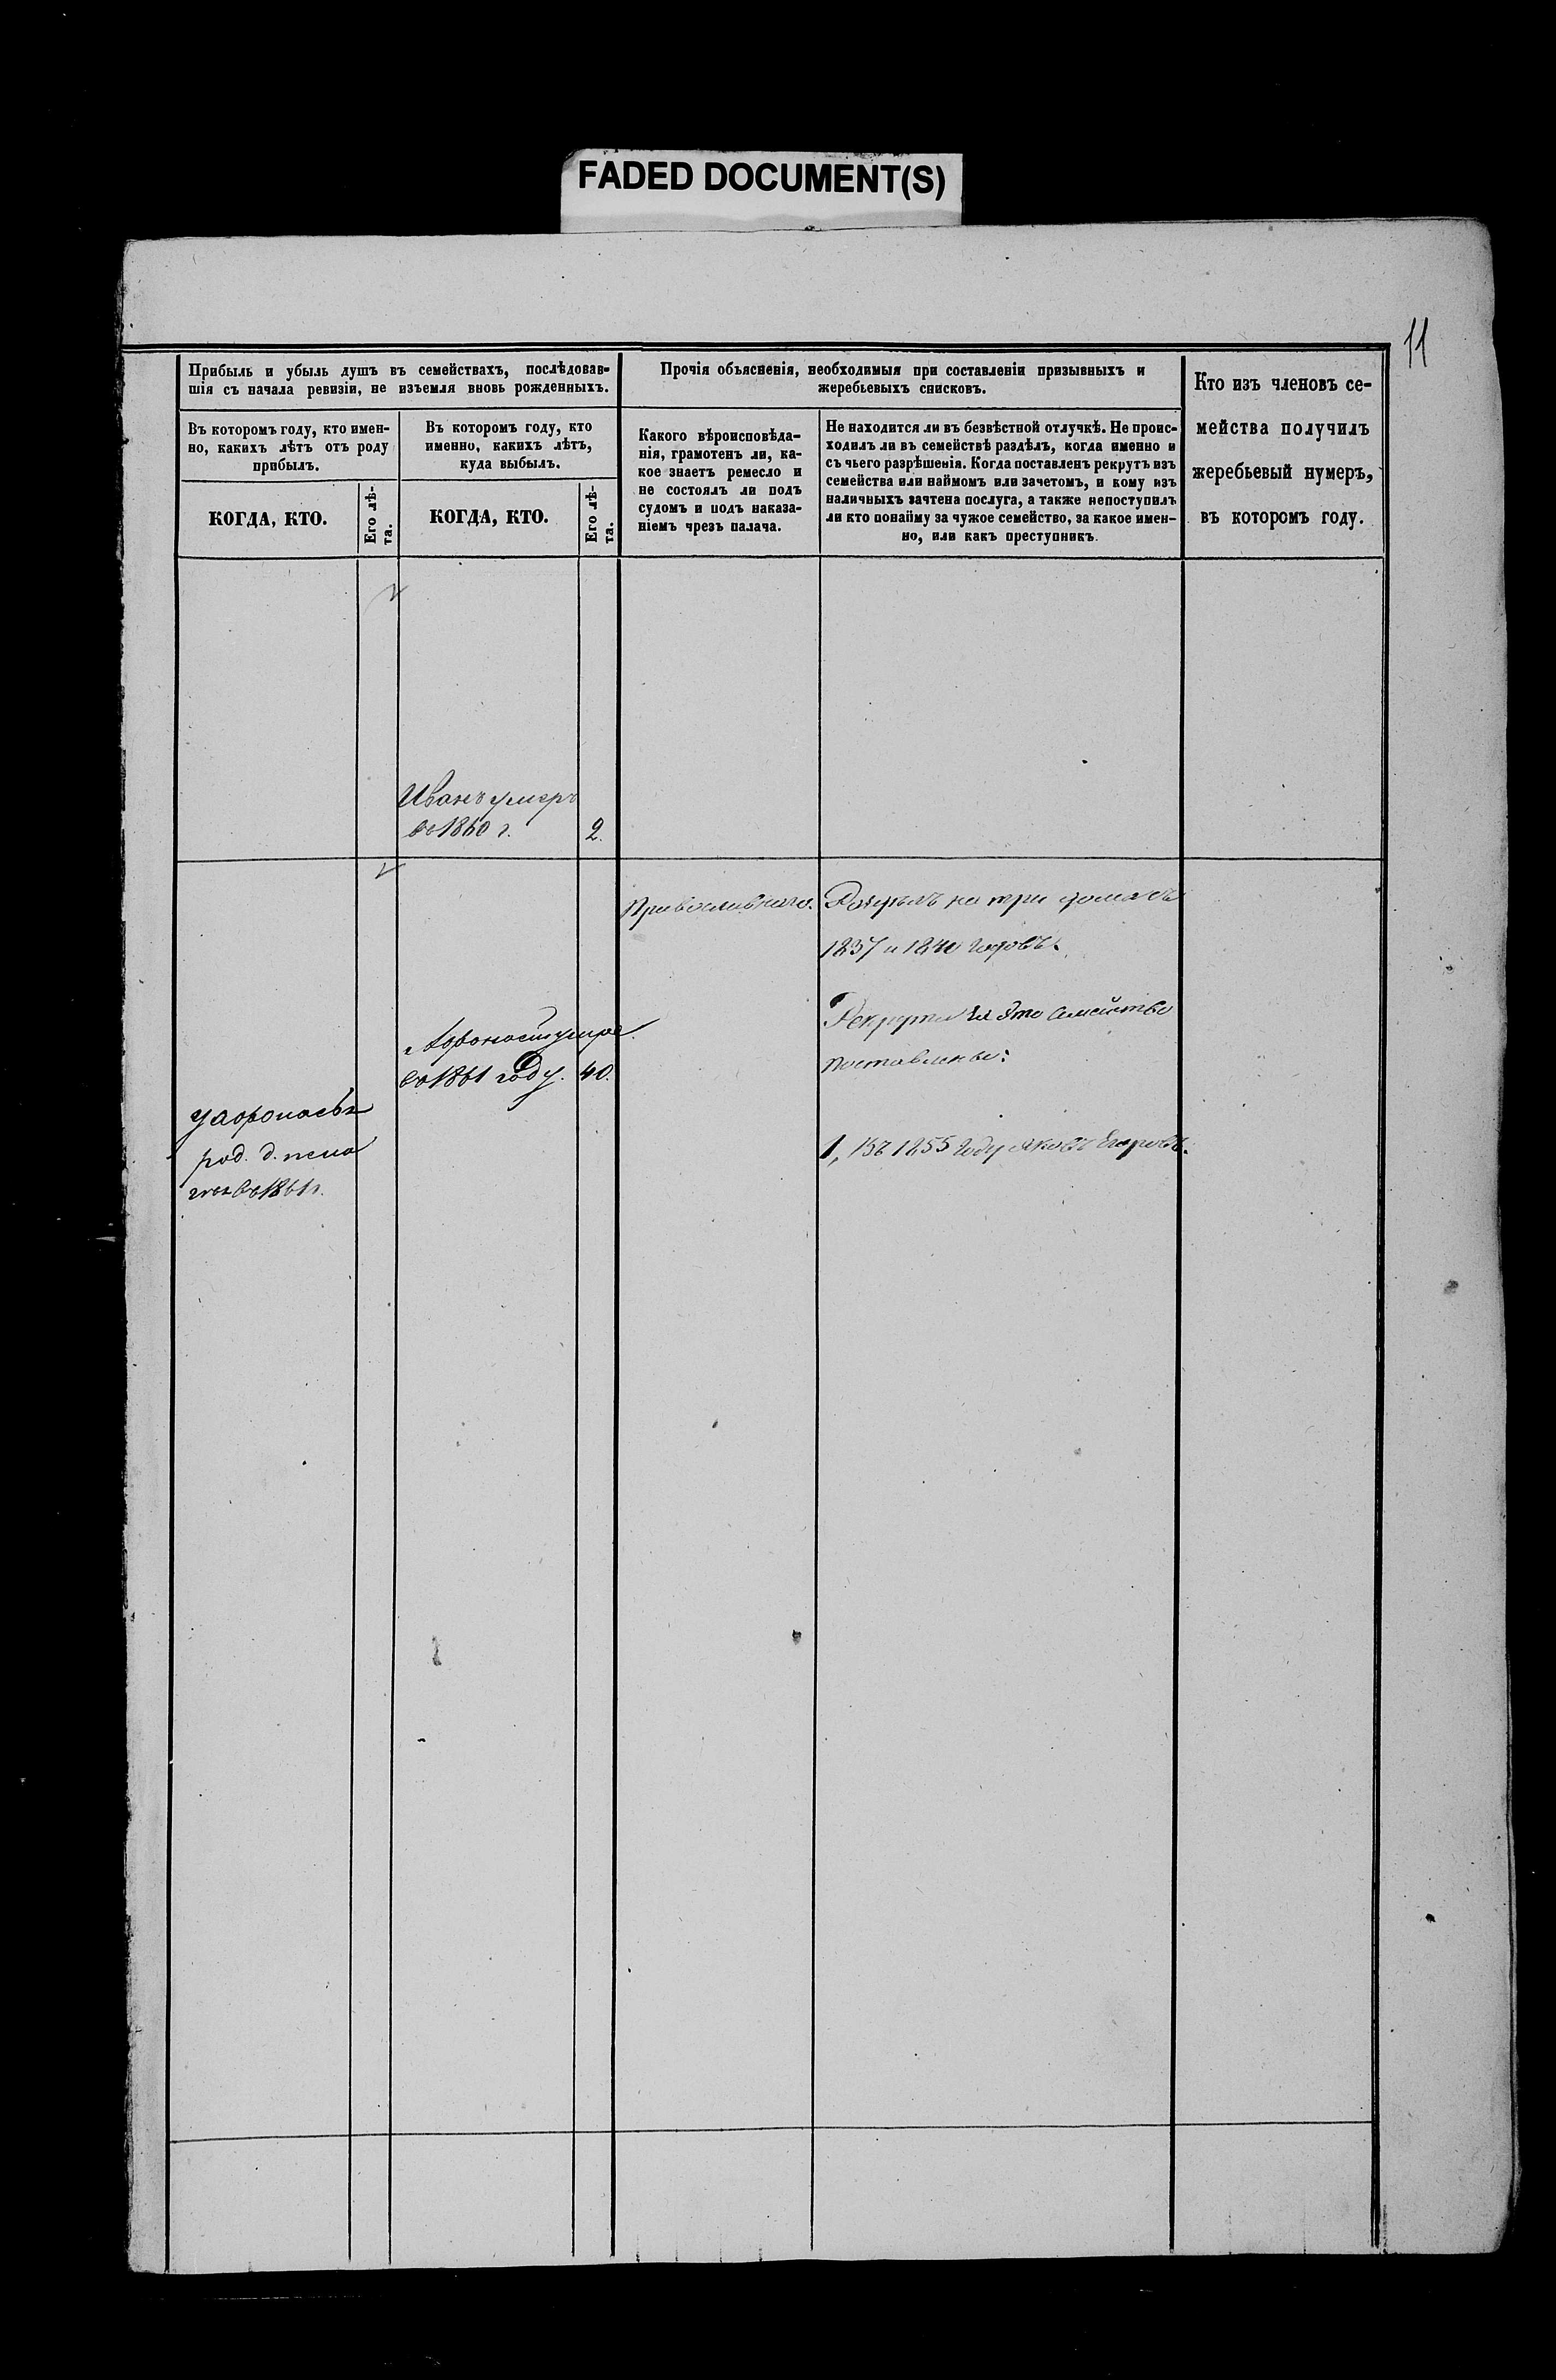 FADED DOCUMENT(S)
11
Прибыль и убыль душъ въ семействахъ, послѣдовав-
шія съ начала ревизіи, не изъемля вновь рожденныхъ.
Въ которомъ году, кто имен-
но, какихъ лѣтъ отъ роду
прибылъ.
КОГДА, КТО.
Его лѣ-
та.
Въ которомъ году, кто
именно, какихъ лѣтъ,
куда выбылъ.
КОГДА, КТО.
Его лѣ-
та.
Прочія объясненія, необходимыя при составленіи призывныхъ и
жеребьевыхъ списковъ.
Какого вѣроисповѣда-
нія, грамотенъ ли, ка-
кое знаетъ ремесло и
не состоялъ ли подъ
судомъ и подъ наказа-
ніемъ чрезъ палача.
Не находится ли въ безвѣстной отлучкѣ. Не проис-
ходилъ ли въ семействѣ раздѣлъ, когда именно и
съ чьего разрѣшенія. Когда поставленъ рекрутъ изъ
семейства или наймомъ или зачетомъ, и кому изъ
наличныхъ зачтена послуга, а также непоступилъ
ли кто понайму за чужое семейство, за какое имен-
но, или какъ преступникъ.
Кто изъ членовъ се-
мейства получилъ
жеребьевый нумеръ,
въ которомъ году.
Иванъ умеръ
во 1860 г.
2.
Православнаго.
на три дома съ
1837 и 1840 годовъ.
Рекрута за это семейство
поставлены:
1, Въ 1855 году Яковъ Егоровъ.
Афонасій умре
во 1861 году.
40.
У Афонасья
род. д.
во 1861 г.